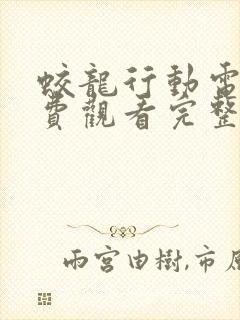 蛟龍行動電
費觀看完整
雨宮由樹,市原